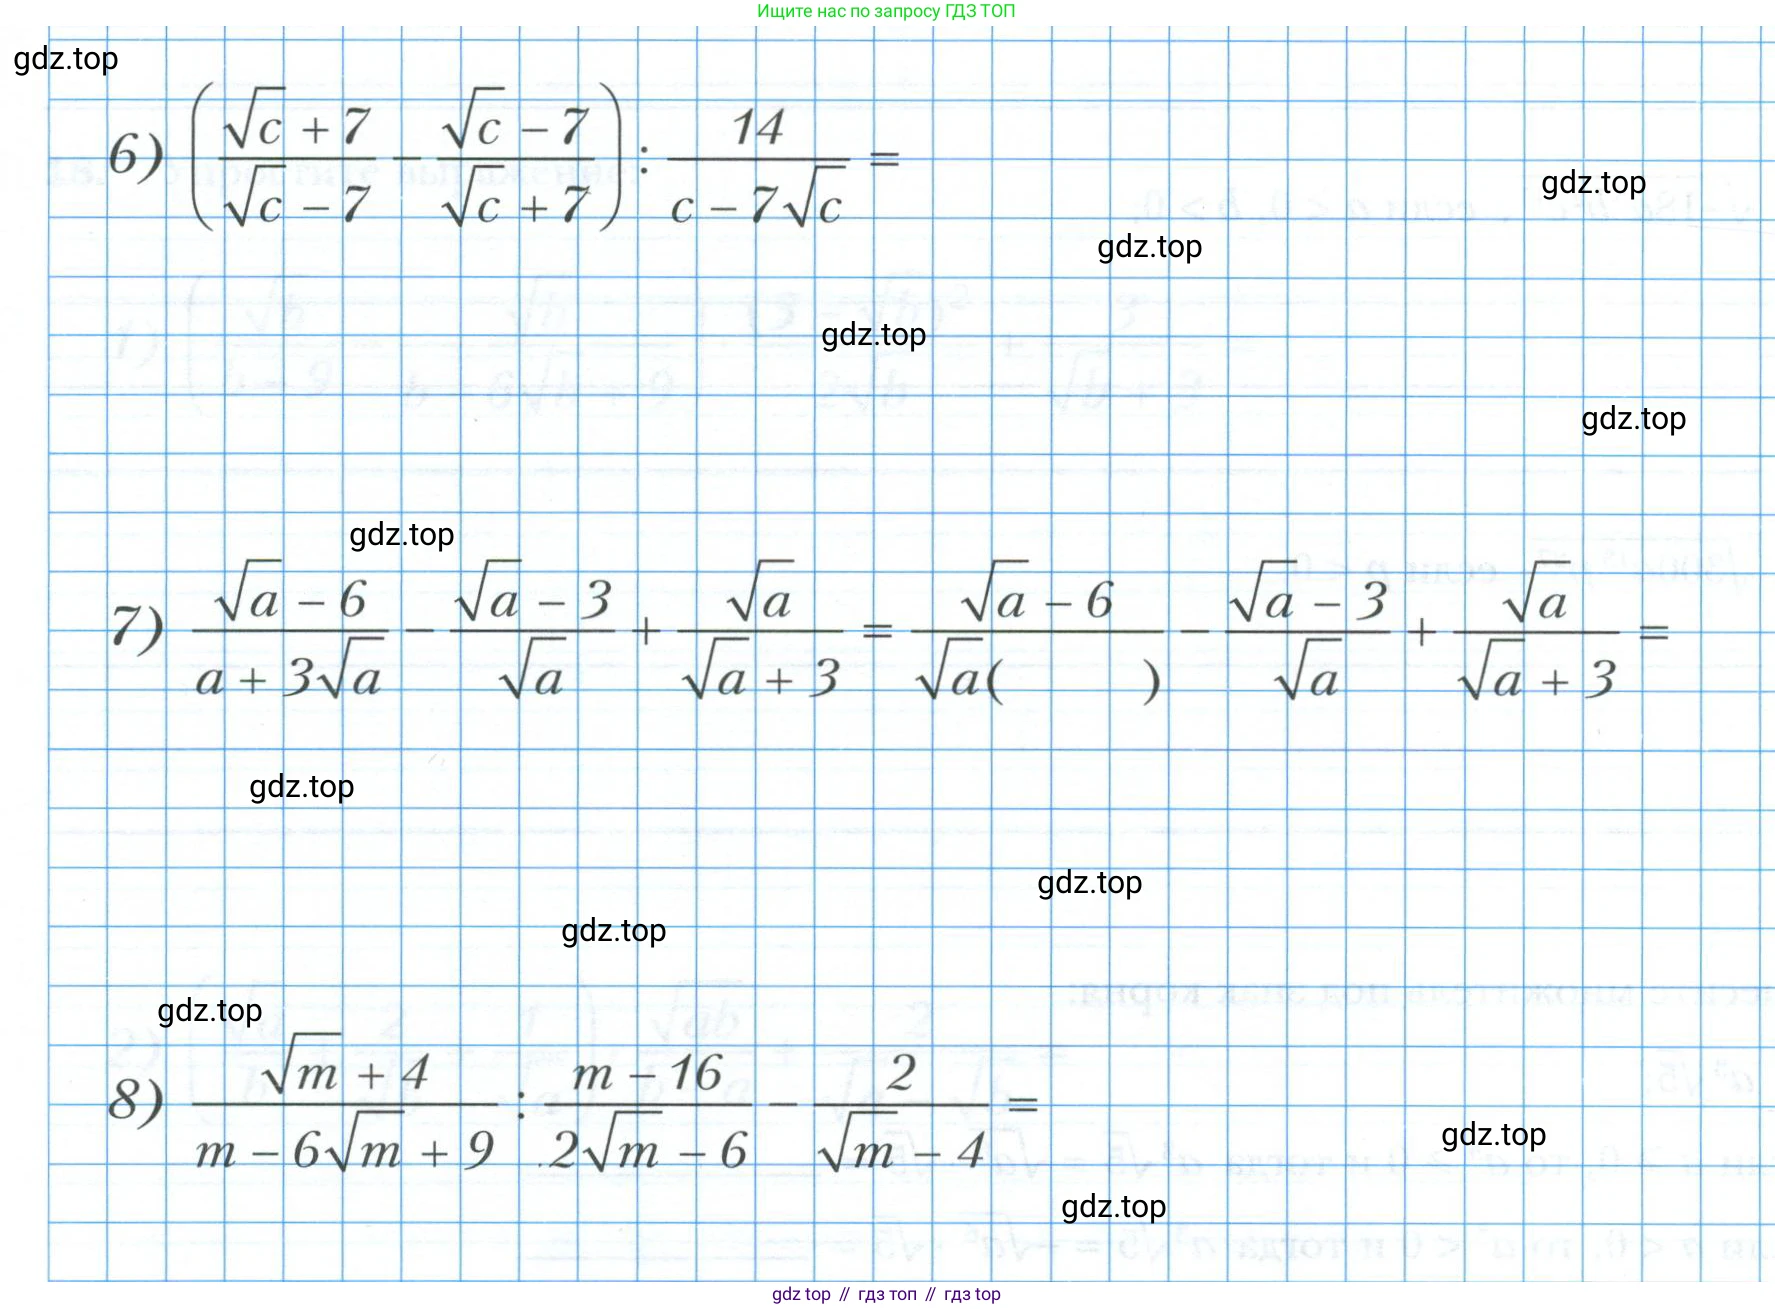 Ищите нас по запросу ГДЗ ТОП
gdz.top
6) ((√c + 7)/(√c − 7) − (√c − 7)/(√c + 7)) : 14/(c − 7√c) =
gdz.top
gdz.top
gdz.top
gdz.top
gdz.top
7) (√a − 6)/(a + 3√a) − (√a − 3)/√a + √a/(√a + 3) = (√a − 6)/(√a( )) − (√a − 3)/√a + √a/(√a + 3) =
gdz.top
gdz.top
gdz.top
gdz.top
8) (√m + 4)/(m − 6√m + 9) : (m − 16)/(2√m − 6) − 2/(√m − 4) =
gdz.top
gdz.top
gdz top // гдз топ // гдз top